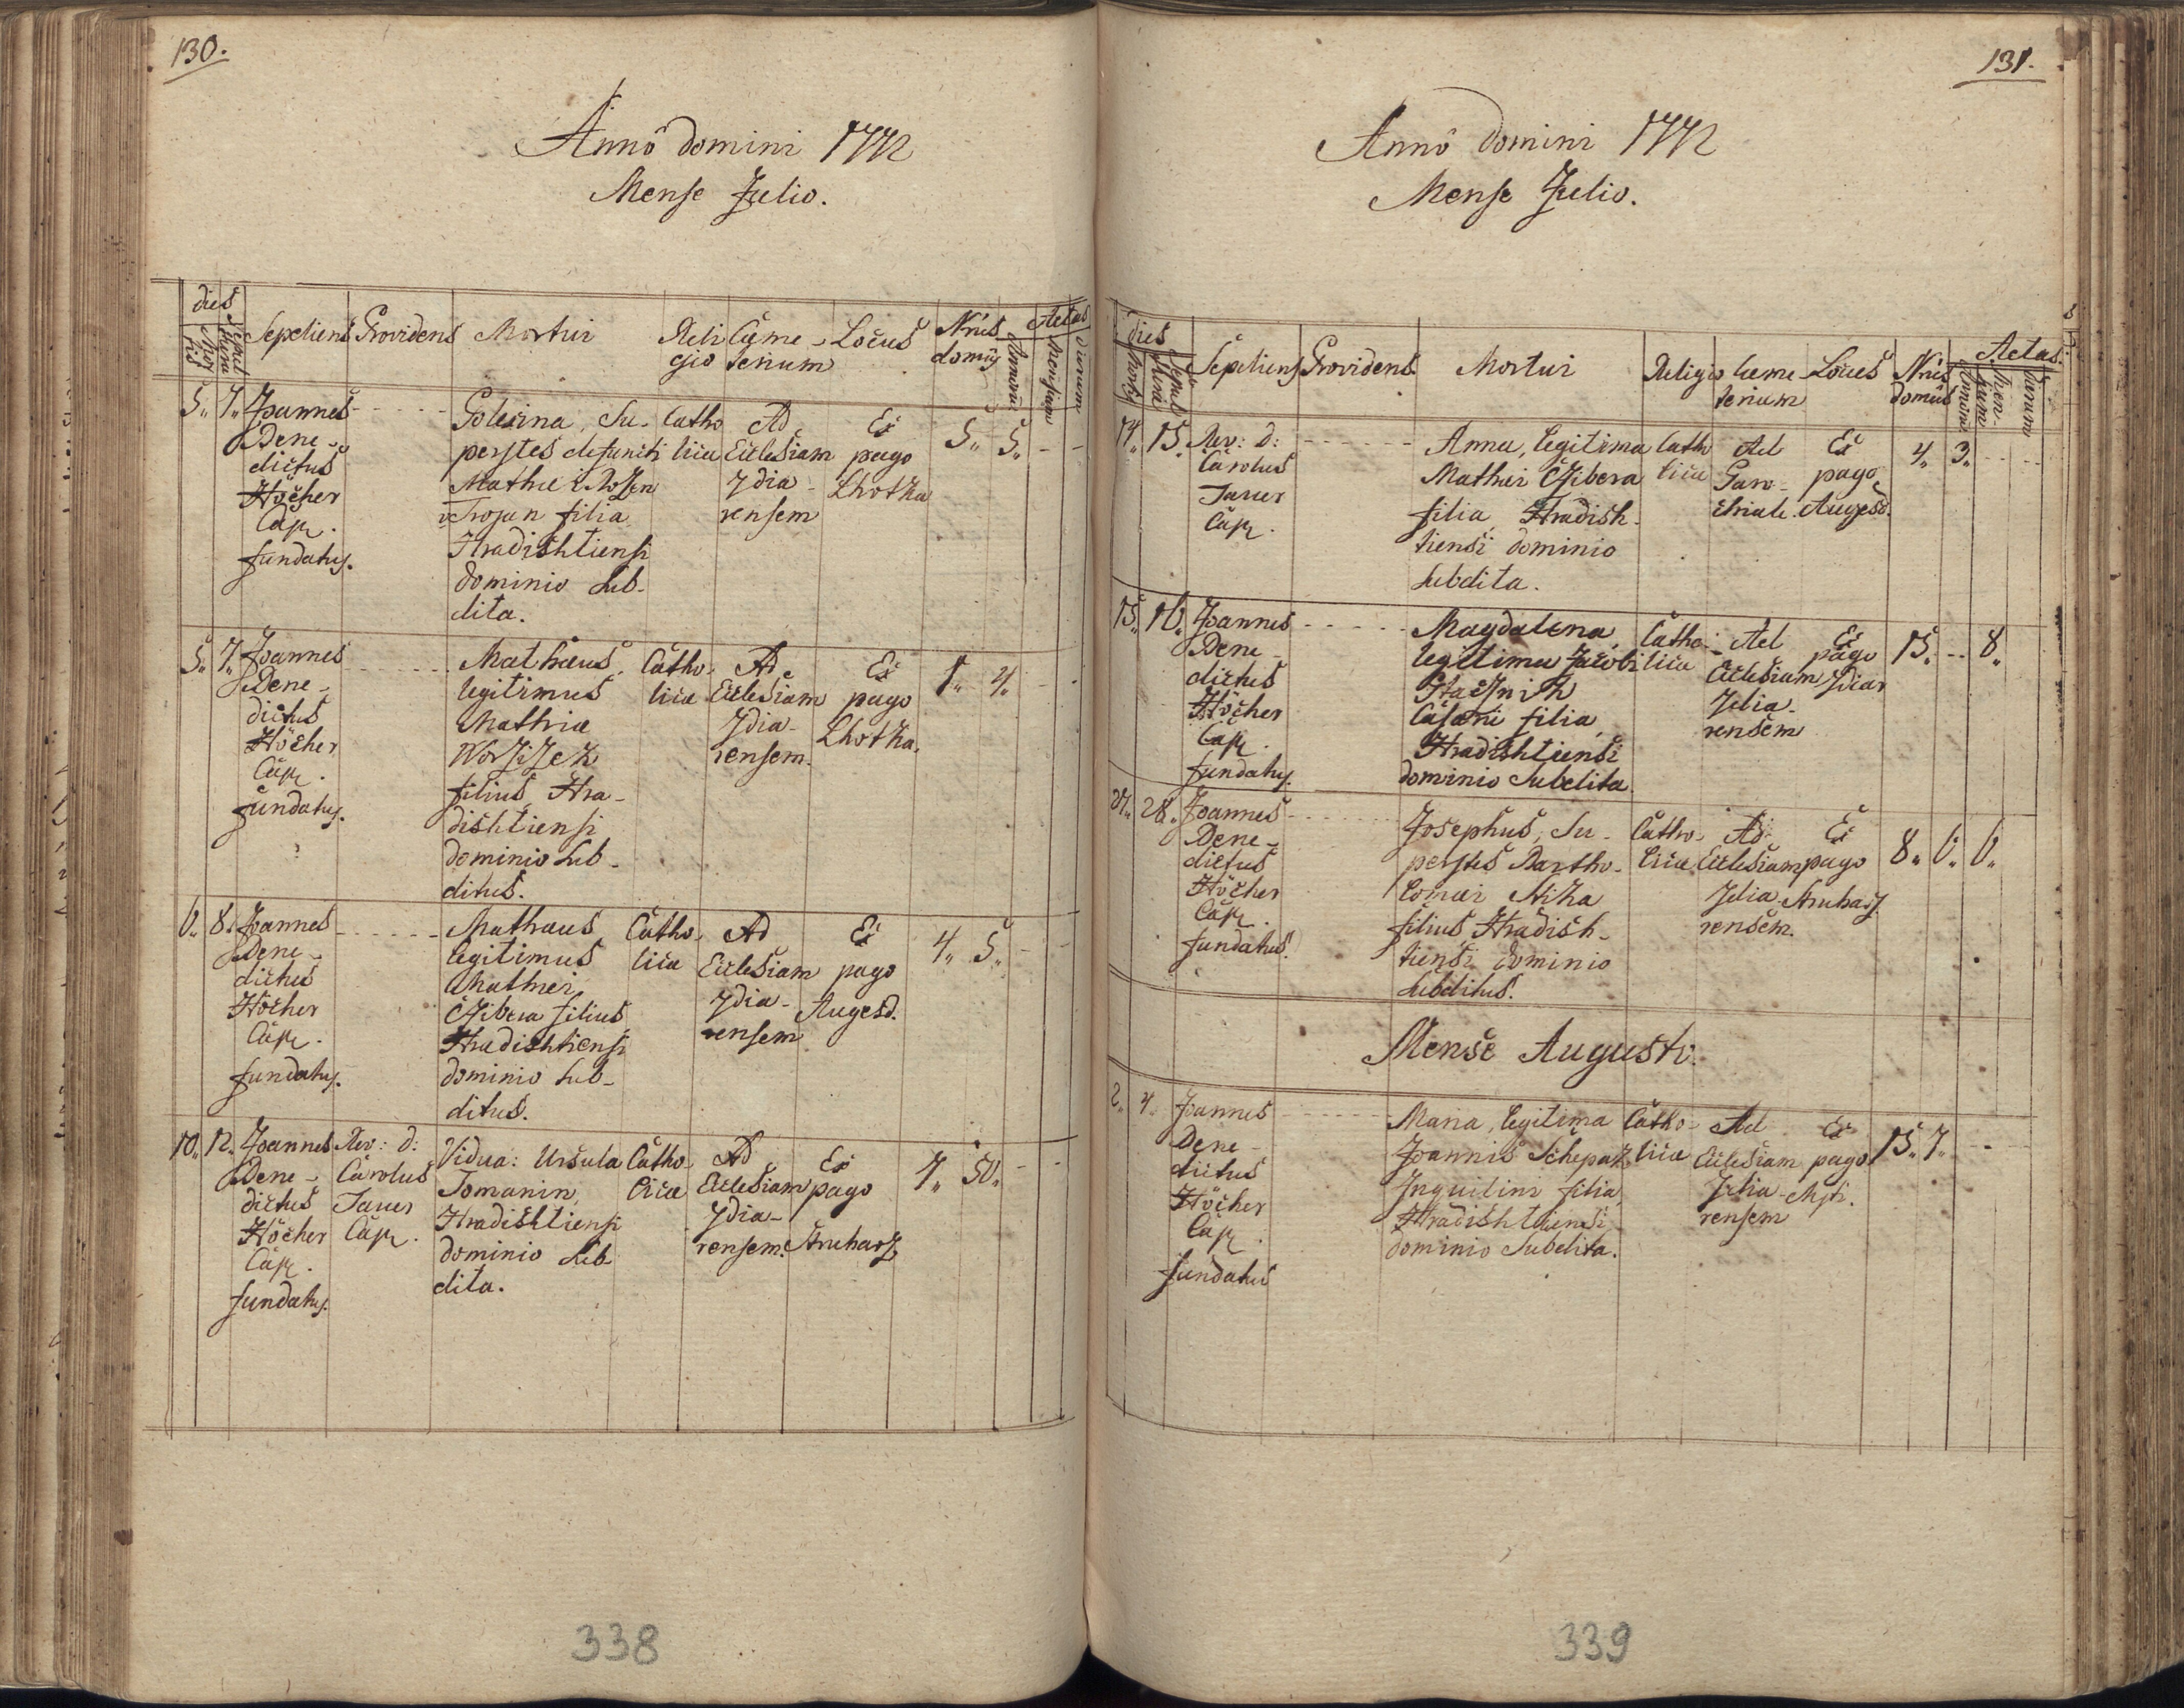 130.
Anno domini 1772
Mense Julio.
dies Aetas
Mortis Sepulturae Sepeliens Providens Mortui Religio Caemeterium Locus Nrus domus Annorum Mensium Dierum
5. 7. Joannes Bene- dictus Höcher Cap. fundatus.
Polexina, Su-
perstes defuncti
Mathiae
Trojan filia
Hradishtiensi
dominio sub-
dita.
Catho lica
Ad Ecclesiam Zdia- rensem
Ex pago Lhotka
5. 5. - -
5. 7. Joannes Bene- dictus Höcher Cap. fundatus.
Mathaeus,
legitimus
Mathiae
filius Hra-
dishtiensi
dominio Sub-
ditus.
Catho- lica
Ad Ecclesiam Zdia- rensem.
Ex pago Lhotka.
1. 4. - -
6. 8. Joannes Bene- dictus Höcher Cap. fundatus.
Mathaeus
legitimus
Mathaei
Czibera filius
Hradishtiensi
dominio Sub-
ditus.
Catho- lica
Ad Ecclesiam Zdia- rensem
Ex pago Augesd.
4. 5. - -
10. 12. Joannes Bene- dictus Höcher Cap. fundatus.
Rev: D: Carolus Cap.
Vidua: Ursula
Tomanin,
Hradishtiensi
dominio Sub-
dita.
Catho- lica
Ad Ecclesiam Zdia- rensem.
Ex pago Struharz
7. 50. - -
338
131.
Anno Domini 1772
Mense Julio.
dies Aetas.
Mortis Sepulturae Sepeliens Providens Mortui Religio Caemeterium Locus Nrus domus Annorum Mensium Dierum
14. 15. Rev: D: Carolus Cap.
Anna, legitima
Mathaei Czibera
filia, Hradish-
tiensi dominio
Subdita.
Catho lica
Ad Paro- chiale.
Ex pago Augesd.
4. 3. - -
15. 16. Joannes Bene- dictus Höcher Cap. fundatus.
Magdalena,
legitima Jacobi
Casarii filia,
Hradishtiensi
dominio Subdita.
Catho- lica
Ad Ecclesiam Zdia- rensem
Ex pago Zdiar
15. - 8.
27. 28. Joannes Bene- dictus Höcher Cap. fundatus.
Josephus, Su-
perstes Bartho-
lomaei Sika
filius Hradish-
tiensi dominio
Subditus.
Catho- lica
Ad Ecclesiam Zdia- rensem.
Ex pago Struharz.
8. 6. 6.
Mense Augusto.
2. 4. Joannes Bene- dictus Höcher Cap. fundatus
Maria, legitima
Joannis Schepak
Inquilini filia,
Hradishtiensi
dominio Subdita.
Catho- lica
Ad Ecclesiam Zdia- rensem
Ex pago
15. 7. -
339